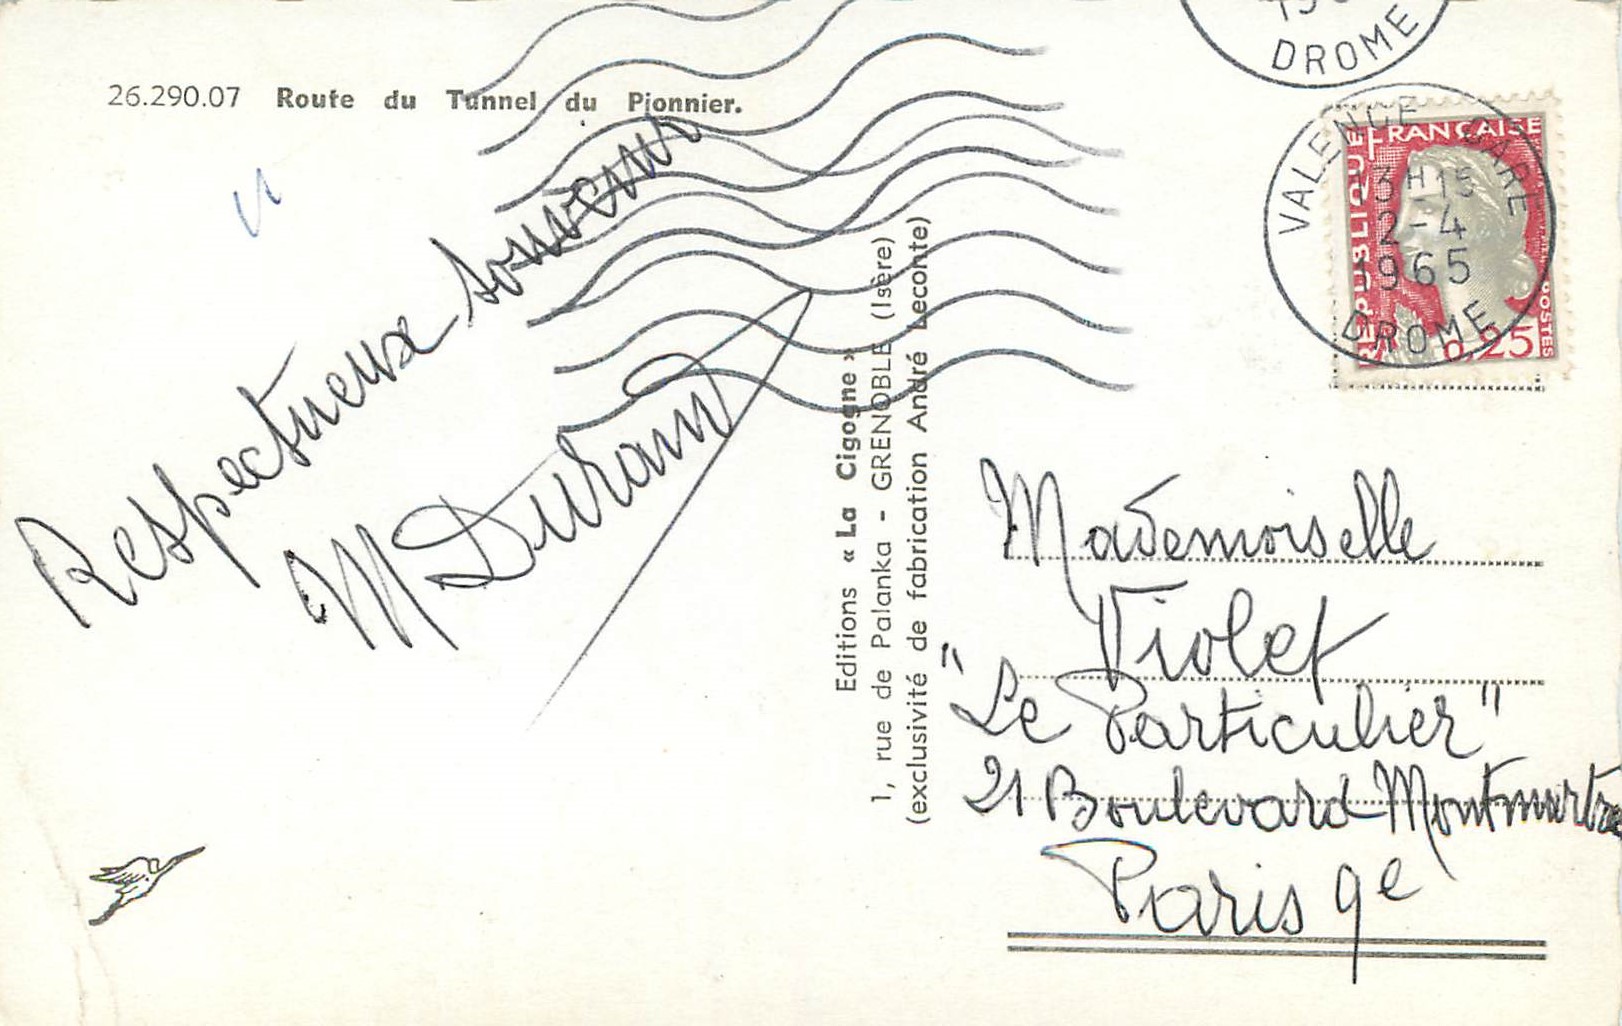 26.290.07 Route du Tunnel du Pionnier.
Respectueux souvenir
M Durant
Editions « La Cigogne »
1, rue de Palanka - GRENOBLE (Isère)
(exclusivité de fabrication André Leconte)
DROME
VALENCE GARE
13H15
2-4
1965
DROME
REPUBLIQUE FRANÇAISE
POSTES
0,25
Mademoiselle
Violet
"Le Particulier"
21 Boulevard Montmartre
Paris 9e